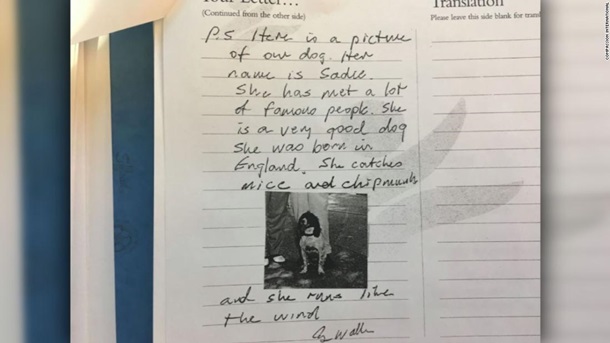 Your Letter...
(Continued from the other side)
P.S Here is a picture
of our dog. Her
name is Sadie.
She has met a lot
of famous people. She
is a very good dog
She was born in
England. She catches
mice and chipmunks
and she runs like
the wind
Translation
Please leave this side blank for
COMPASSION INTERNATIONAL